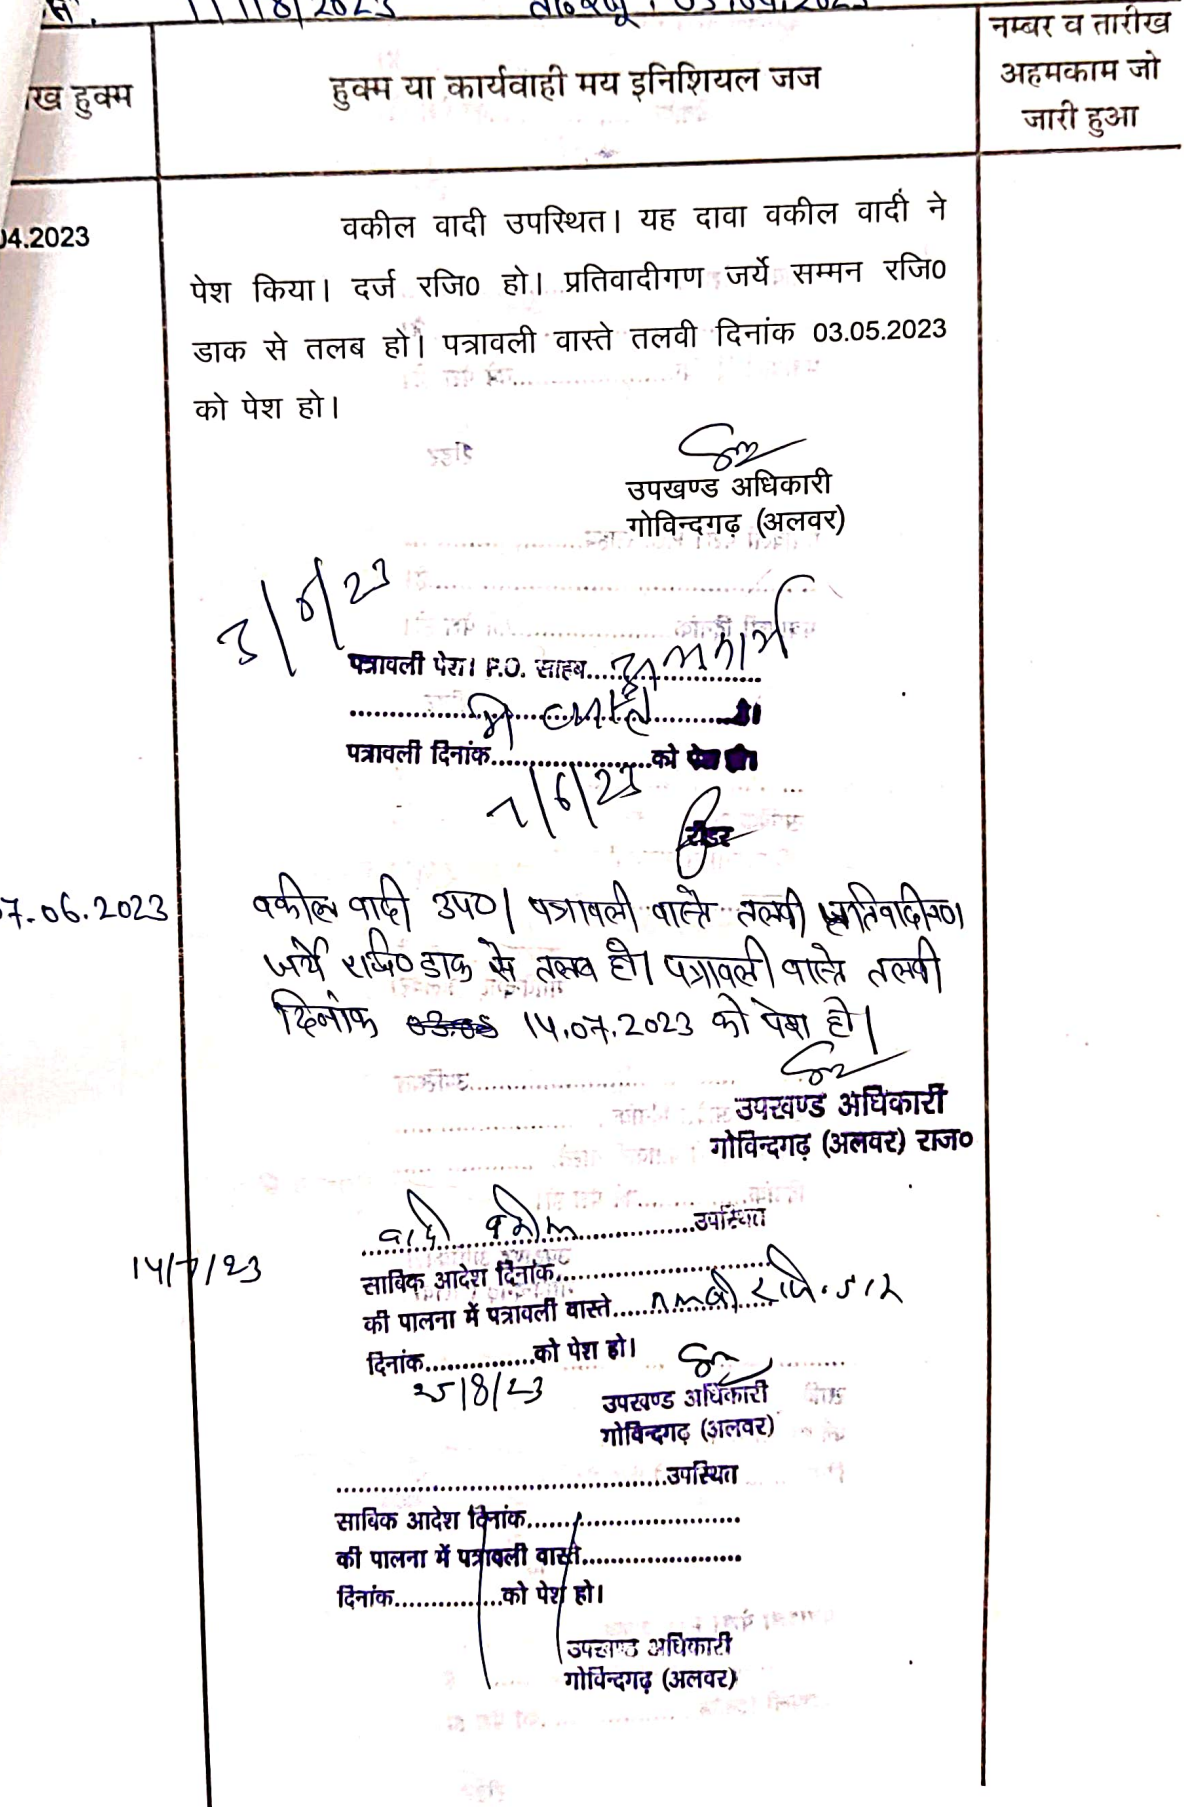 हुक्म या कार्यवाही मय इनिशियल जज
नम्बर व तारीख
अहमकाम जो
जारी हुआ
ख हुक्म
04.2023
वकील वादी उपस्थित। यह दावा वकील वादी ने
पेश किया। दर्ज रजि0 हो। प्रतिवादीगण जर्ये सम्मन रजि0
डाक से तलब हो। पत्रावली वास्ते तलवी दिनांक 03.05.2023
को पेश हो।
उपखण्ड अधिकारी
गोविन्दगढ़ (अलवर)
पत्रावली पेश। P.O. साहब
पत्रावली दिनांक 7/6/23 को पेश हो।
रीडर
7.06.2023
वकील वादी उप0। पत्रावली वास्ते तलवी प्रतिवादीगण
जर्ये रजि0 डाक से तलब हो। पत्रावली वास्ते तलवी
दिनांक 14.07.2023 को पेश हो।
उपखण्ड अधिकारी
गोविन्दगढ़ (अलवर) राज०
14/7/23
वादी वकील उपस्थित
साबिक आदेश दिनांक
की पालना में पत्रावली वास्ते
दिनांक 25/8/23 को पेश हो।
उपखण्ड अधिकारी
गोविन्दगढ़ (अलवर)
उपस्थित
साबिक आदेश दिनांक
की पालना में पत्रावली वास्ते
दिनांक को पेश हो।
उपखण्ड अधिकारी
गोविन्दगढ़ (अलवर)